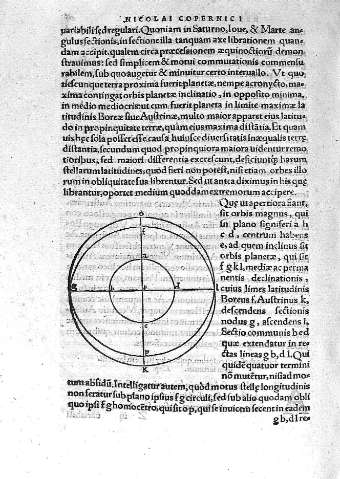 NICOLAI COPERNICI
variabili sed regulari. Quoniam in Saturno, Ioue, & Marte angulus sectionis, in
angulus sectionis, in sectione illa tanquam axe librationem quandam
dam accipit. qualem circa præcessionem æquinoctiorū demonstrauimus
strauimus: sed simplicem & motui commutationis commensurabilem
rabilem, sub quo augetur & minuitur certo interuallo. Vt quo-
tiescunque terra proxima fuerit planetæ, nempe acronycto, maxima
xima contingat orbis planetæ inclinatio, in opposito minima,
in medio mediocris: ut cum fuerit planeta in limite maximæ latitudinis
titudinis Boreæ siue Austrinæ, multo maior apparet eius latitudo
do in propinquitate terræ, quàm eius maxima distātia. Et quamuis
uis hæc sola posset esse causa huiusce diuersitatis inæqualis terræ
distantia, secundum quod propinquiora maiora uidentur remo-
tioribus, sed maiori differentia excrescunt, deficiuntq́ harum
stellarum latitudines, quod fieri non potest, nisi etiam orbes illorum
rum in obliquitate sua librentur. Sed ut antea diximus in his quę
librantur, oportet medium quoddam extremorum accipere.
Quę ut apertiora fiant,
sit orbis magnus, qui
in plano signiferi a b
c d, centrum habens
e, ad quem inclinis sit
orbis planetæ, qui sit
f g k l, mediæ ac perma
nentis declinationis,
cuius limes latitudinis
Boreus f, Austrinus k,
descendens sectionis
nodus g, ascendens l,
Sectio communis b e d
quæ extendatur in re-
ctas lineas g b, d l. Qui
quidē quatuor termini
nō mutētur, nisi ad mo
tum absidū. Intelligatur autem, quòd motus stellę longitudinis
non feratur sub plano ipsius f g circuli, sed sub alio quodam obli
quo ipsi f g homocētro, qui sit o p, qui se inuicem secent in eadem
g b, d l re-